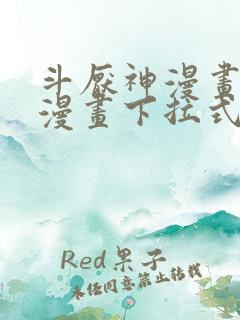 斗厭神漫畫
漫畫下拉式
Red果子
未经同意禁止转载